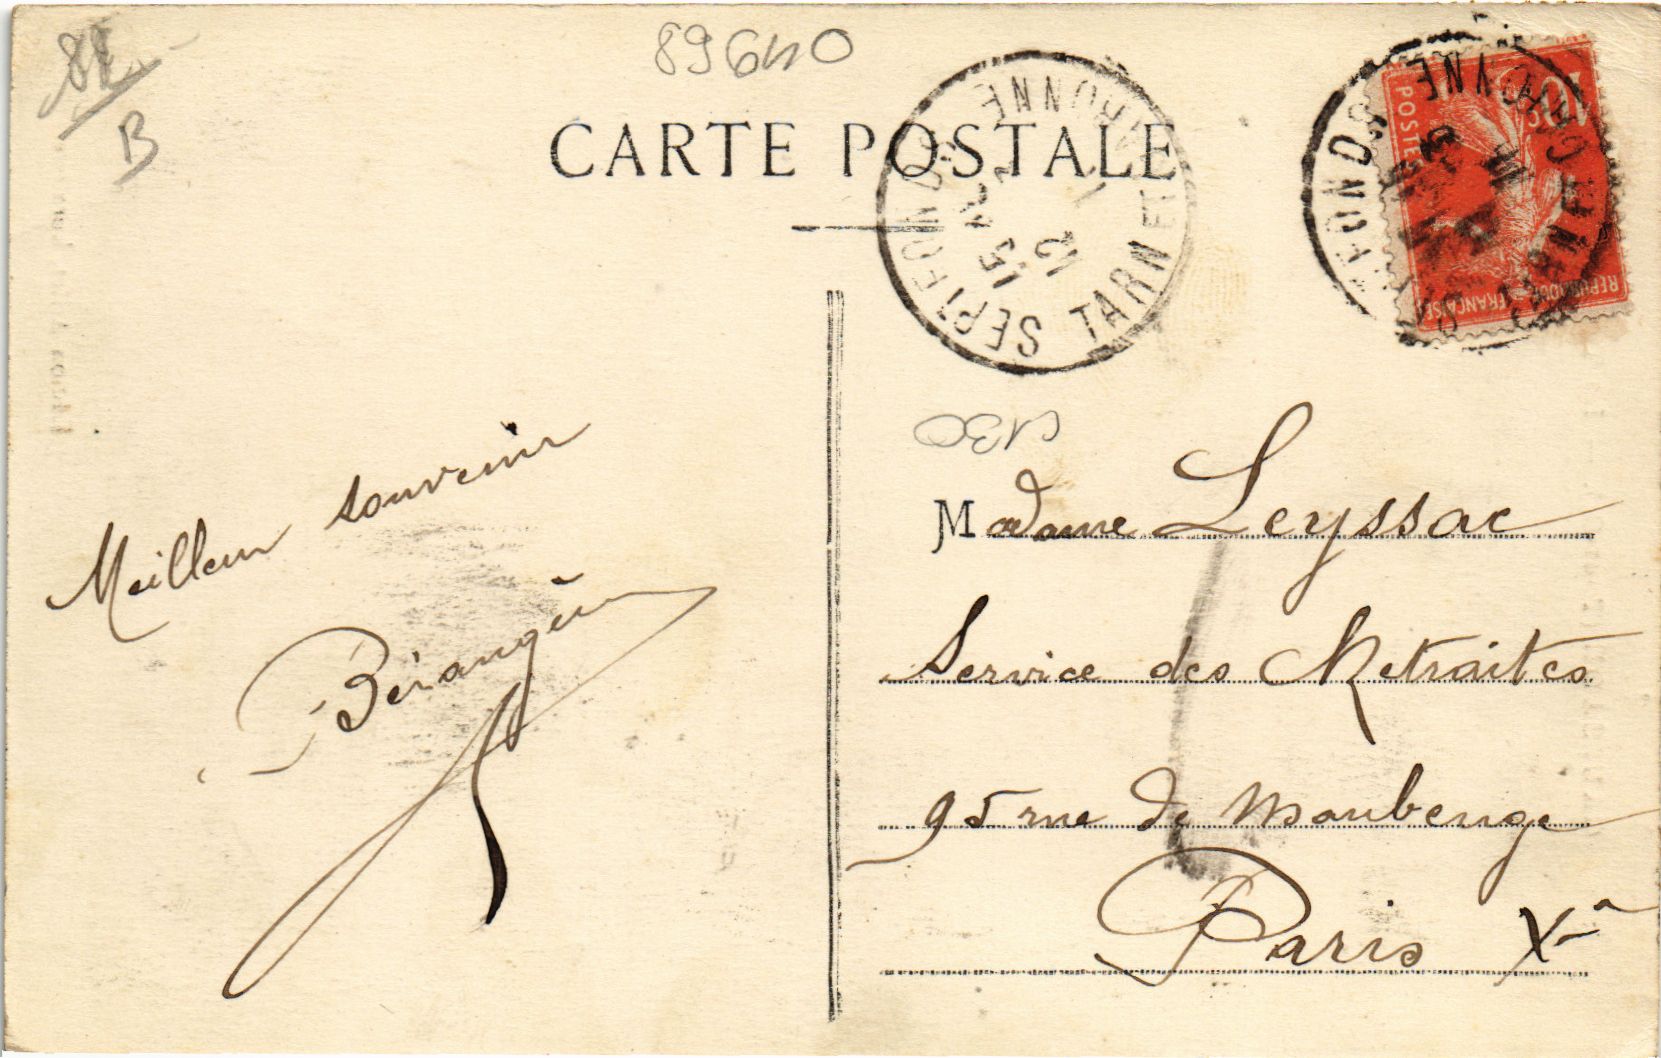 89640
B
CARTE POSTALE
SEPTFONDS
TARN ET GARONNE
15
12
10c
POSTES
REPUBLIQUE FRANÇAISE
Meilleur souvenir
Bérangère
130
Madame Leyssac
Service des Retraites
95 rue de Maubeuge
Paris Xe